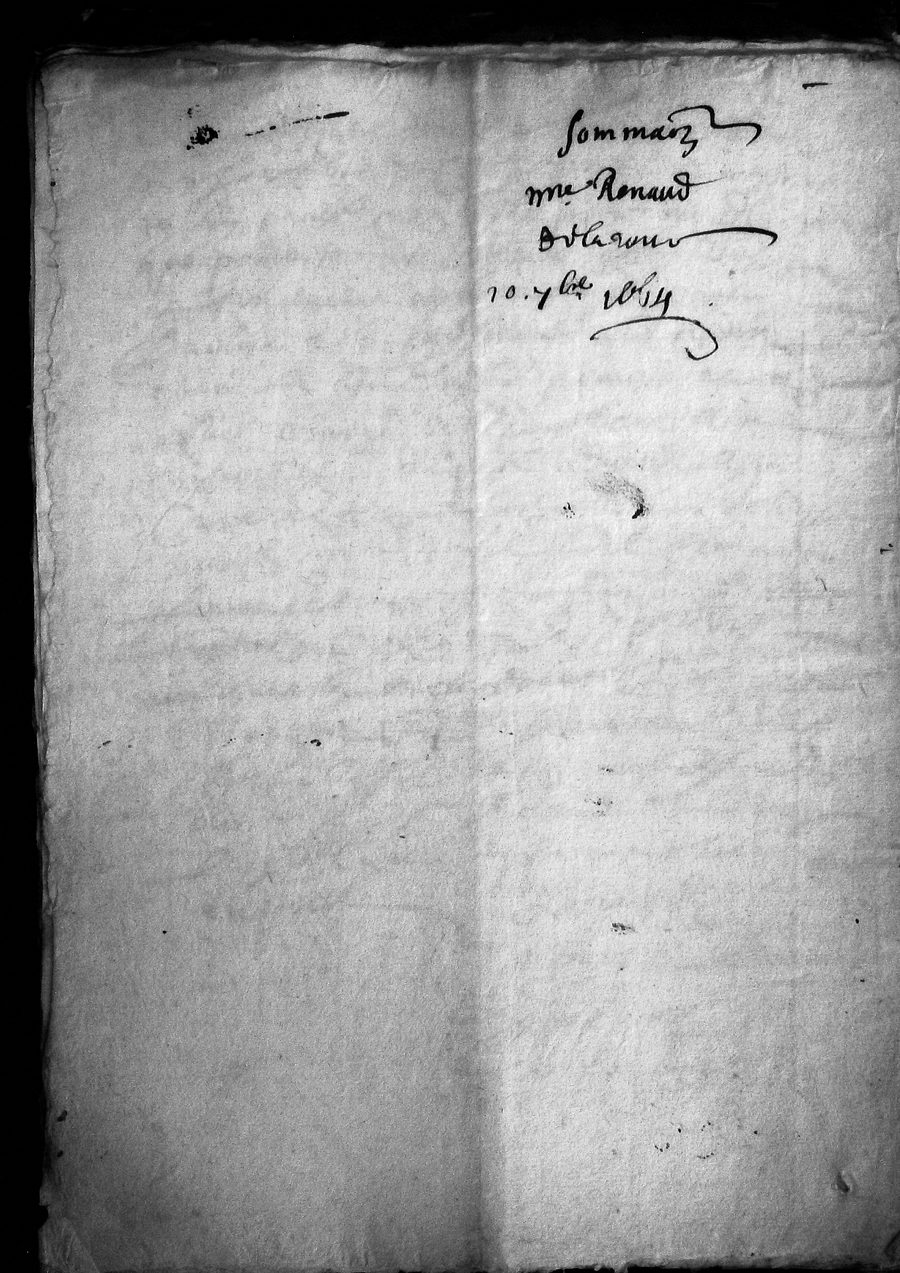 Sommaon
mre Renaud
Delatour
10. 7bre 1664